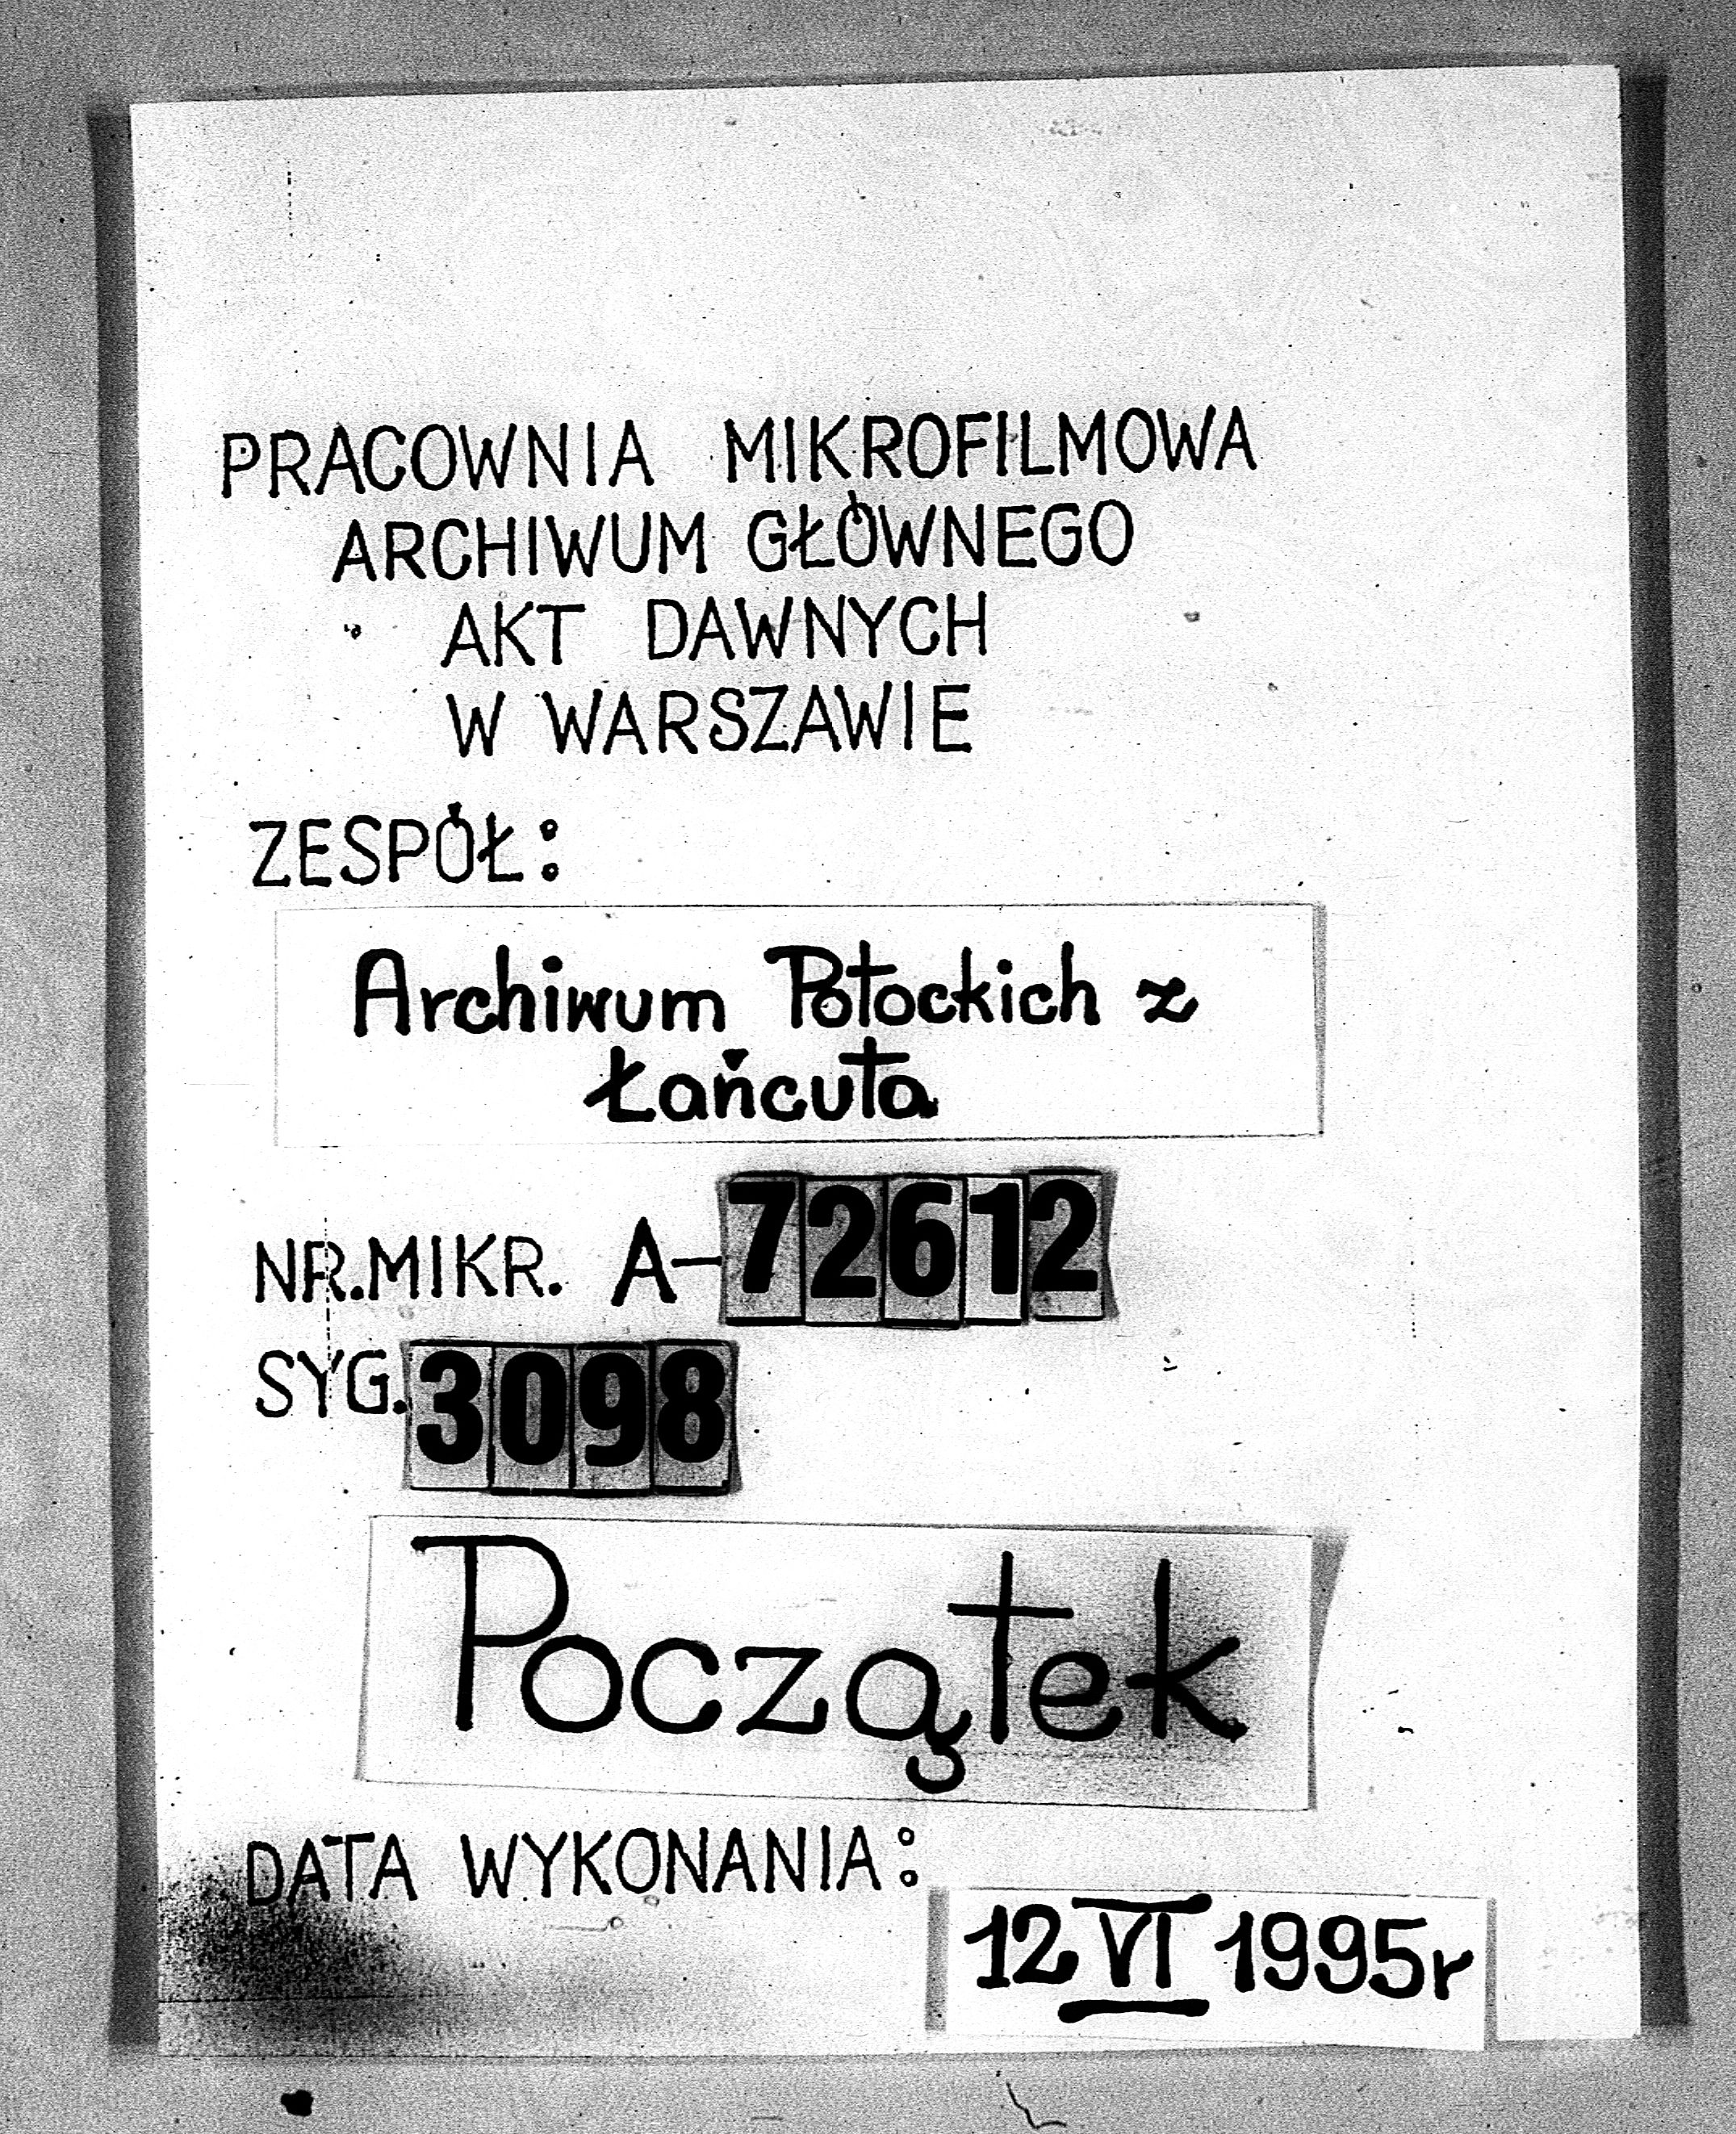 PRACOWNIA MIKROFILMOWA
ARCHIWUM GŁÓWNEGO
AKT DAWNYCH
W WARSZAWIE
ZESPÓŁ:
Archiwum Potockich z
Łańcuta
NR.MIKR. A-72612
SYG. 3098
Początek
DATA WYKONANIA:
12 VI 1995r